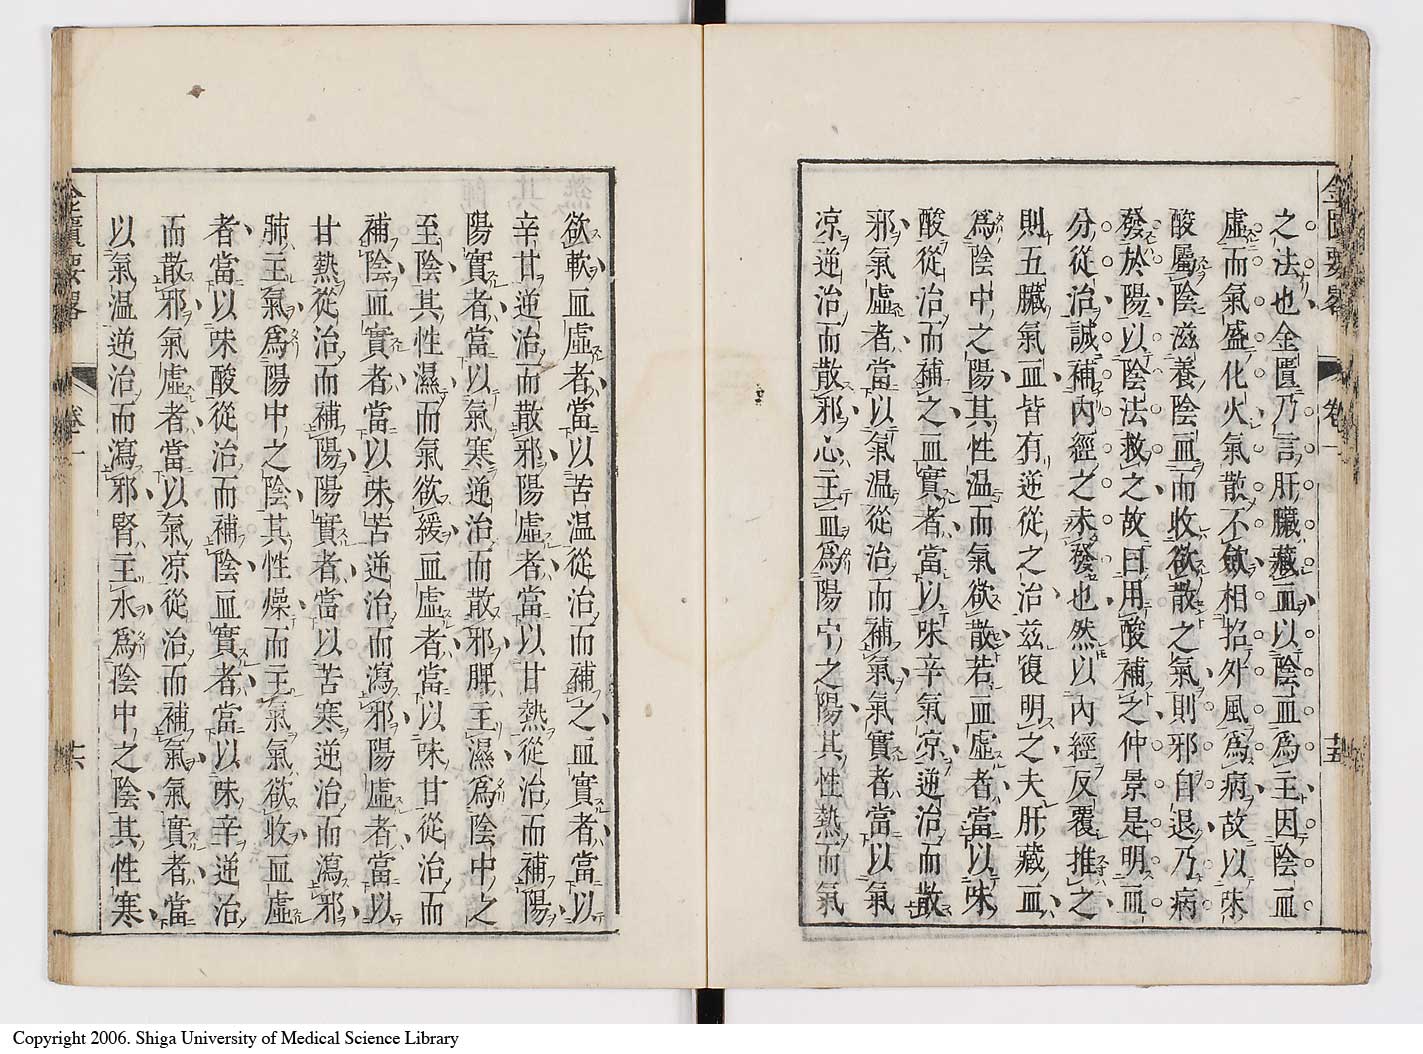 金匱要畧 卷一 十五
之法也金匱乃言肝臟藏血以陰血爲主因陰血
虛而氣盛化火氣散不斂相招外風爲病故以味
酸屬陰滋養陰血而收欲散之氣則邪自退乃病
發於陽以陰法救之故曰用酸補之仲景是明血
分從治誠補內經之未發也然以內經反覆推之
則五臟氣血皆有逆從之治茲復明之夫肝藏血
爲陰中之陽其性温而氣欲散若血虛者當以味
酸從治而補之血實者當以味辛氣凉逆治而散
邪氣虛者當以氣温從治而補氣氣實者當以氣
凉逆治而散邪心主血爲陽中之陽其性熱而氣
欲軟血虛者當以苦温從治而補之血實者當以
辛甘逆治而散邪陽虛者當以甘熱從治而補陽
陽實者當以氣寒逆治而散邪脾主濕爲陰中之
至陰其性濕而氣欲緩血虛者當以味甘從治而
補陰血實者當以味苦逆治而瀉邪陽虛者當以
甘熱從治而補陽陽實者當以苦寒逆治而瀉邪
肺主氣爲陽中之陰其性燥而主氣氣欲收血虛
者當以味酸從治而補陰血實者當以味辛逆治
而散邪氣虛者當以氣凉從治而補氣氣實者當
以氣温逆治而瀉邪腎主水爲陰中之陰其性寒
金匱要畧 卷一 十六
Copyright 2006. Shiga University of Medical Science Library